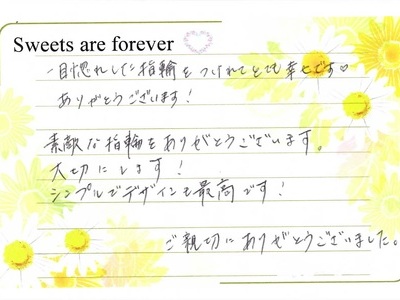 Sweets are forever
一目惚れした指輪をつけれてとても幸せです♡
ありがとうございます!
素敵な指輪をありがとうございます。
大切にします!
シンプルでデザインも最高です!
ご親切にありがとうございました。